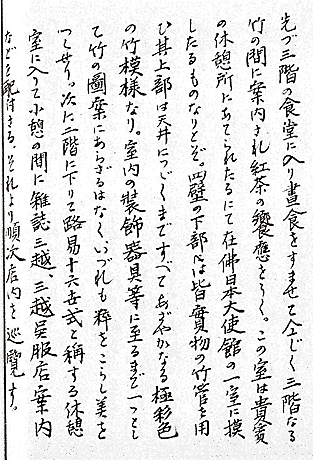 先づ三階の食堂に入り晝食をすませて仝じく三階なる
竹の間に案内され紅茶の饗應をうく。この室は貴賓
の休憩所にあてられたるにて在佛日本大使館の一室に摸
したるものなりとぞ。四壁の下部には皆實物の竹管を用
ひ其上部は天井につゞくまですべてあざやかなる極彩色
の竹模樣なり。室内の裝飾器具等に至るまで一つとし
て竹の圖案にあらざるはなく、いづれも粹をこらし美を
つくせり。次に二階に下りて路易十六世式と稱する休憩
室に入つて小憩の間に雜誌三越、三越呉服店案内
などを配付さる、それより順次店内を巡覽す。